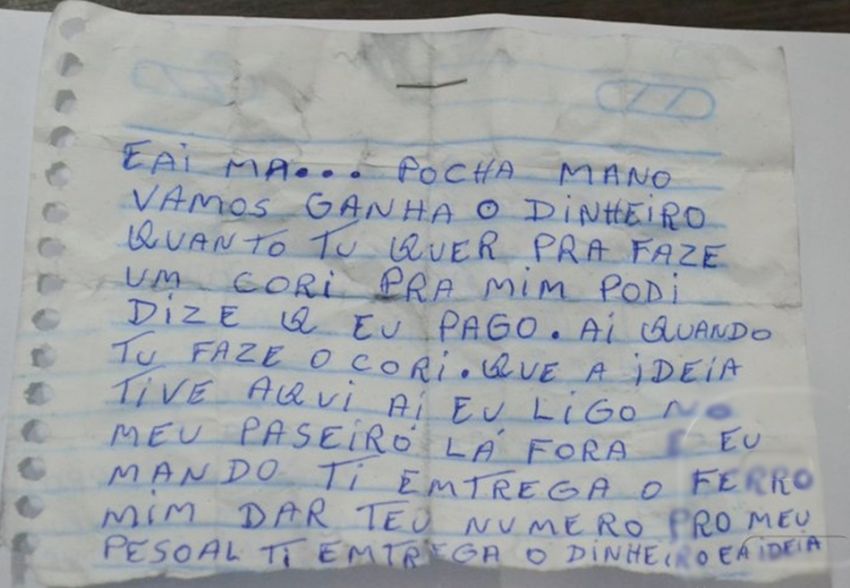 EAI MA... POCHA MANO
VAMOS GANHA O DINHEIRO
QUANTO TU QUER PRA FAZE
UM CORI PRA MIM PODI
DIZE Q EU PAGO. AI QUANDO
TU FAZE O CORI. QUE A IDEIA
TIVE AQUI AI EU LIGO NO
MEU PASEIRO LÁ FORA E EU
MANDO TI EMTREGA O FERRO
MIM DAR TEU NUMERO PRO MEU
PESOAL TI EMTREGA O DINHEIRO EA IDEIA